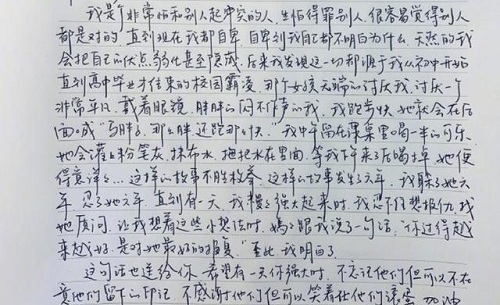 我是个非常怕和别人起冲突的人,生怕得罪别人,很容易觉得别人
都是对的,直到现在我都自卑,自卑到我自己都不明白为什么,天然的我
会把自己的优点弱化甚至隐藏,后来我发现这一切都源于我从初中开始
直到高中毕业才结束的校园霸凌,那个女孩无端的讨厌我,讨厌一个
非常平凡,戴着眼镜,胖胖的闷不作声的我,我跑步快她就会在后
面喊"马胖子,那么胖还跑那么快."我中午留在课桌里喝一半的可乐
她会灌上粉笔灰、抹布水、拖把水在里面,等我下午来了后喝掉她便
得意洋洋…这样的故事不胜枚举,这样的故事发生了六年,我躲了她六
年,忍了她六年,直到有一天,我慢慢强大起来时,我忍不住想报仇,找
她质问,让我想着这些小想法时,妈妈跟我说了一句话,"你过得越
来越好,是对她最好的报复."至此,我明白了
这句话也送给你,希望有一天你强大时,不忘记他们但可以不在
意他们留下的印记,不感谢他们但可以笑着让他们